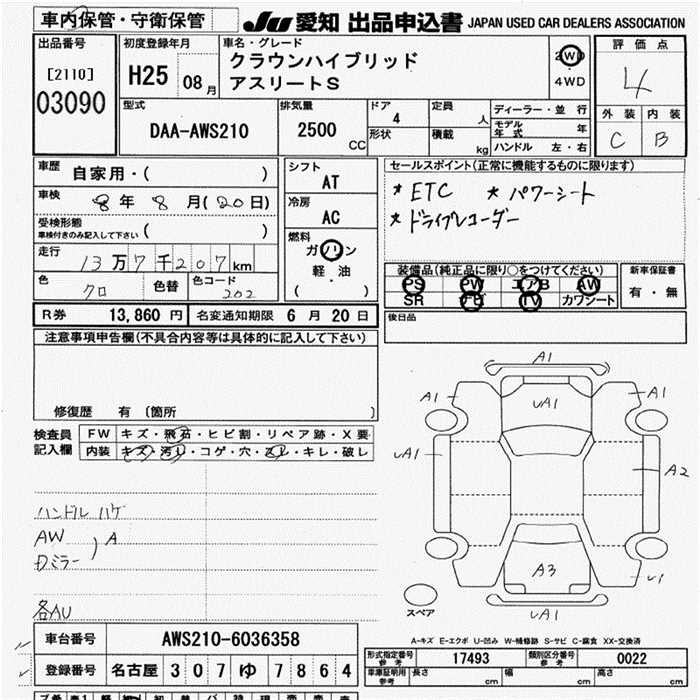 車内保管・守衛保管
JU 愛知 出品申込書 JAPAN USED CAR DEALERS ASSOCIATION
出品番号
[2110]
03090
初度登録年月
H25 08月
車名・グレード
クラウンハイブリッド
アスリートS
2WD
4WD
評価点
4
外装 内装
C B
型式
DAA-AWS210
排気量
2500 CC
ドア
4
定員
人
形状
積載
kg
ディーラー・並行
モデル年式 年
ハンドル 左・右
車歴
自家用・( )
車検
8年 8月(20日)
受検形態
車検付きのみ記入して下さい ( )
走行
13万7千207km
色
クロ
色替
色コード
202
シフト
AT
冷房
AC
燃料
ガソリン
軽・油
( )
セールスポイント(正常に機能するものに限ります)
* ETC * パワーシート
* ドライブレコーダー
装備品(純正品に限り○をつけてください)
PS PW エアB AW
SR ナビ TV カワシート
新車保証書
有・無
R券 13,860 円 名変通知期限 6 月 20 日
後日品
注意事項申告欄(不具合内容等は具体的に記入して下さい)
修復歴 有 〔箇所 〕
検査員記入欄
FW キズ・飛石・ヒビ割・リペア跡・X要
内装 キズ・汚れ・コゲ・穴・スレ・キレ・破レ
ハンドル ハゲ
AW
Dミラー ) A
各AU
A1
A1 UA1 A1
UA1 A2
A3 U1
UA1
スペア
A-キズ E-エクボ U-凹み W-補修跡 S-サビ C-腐食 XX-交換済
車台番号 AWS210-6036358
登録番号 名古屋 307 ゆ 7864
形式指定番号 参考 17493 類別区分番号 参考 0022
車庫証明用 参考 長さ cm 幅 cm 高さ cm